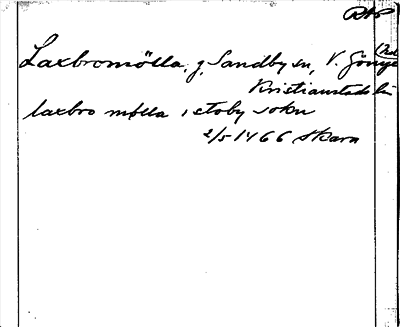 Laxbromölla, g, Sandby sn, V. Göinge
Kristianstads län
laxbro mølla i stoby sokn
2/5 1466 Skara